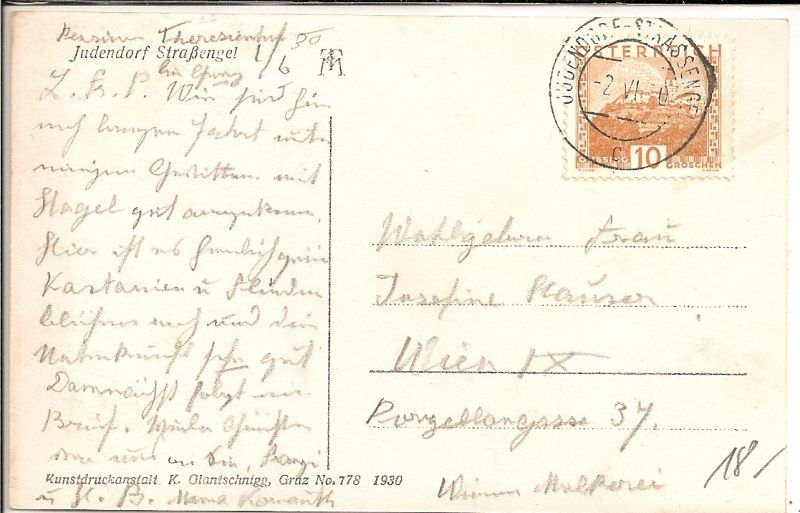 Pension Theresienhof
Judendorf Straßengel 1/6 30
bei Graz
L. F. P. Wir sind hier
nach langer Fahrt unter
einigen Gewittern mit
Hagel gut angekommen.
Hier ist es herrlich grün
Kastanien u Flieder
blühen noch und die
Unterkunft sehr gut
Demnächst folgt ein
Brief. Viele Grüße
von uns an Sie,
Kunstdruckanstalt K. Glantschnigg, Graz No. 778 1930
u H. B. Mama
JUDENDORF-STRASSENGEL
-2 VI 30
C
ÖSTERREICH
GÜSSING 10 GROSCHEN
Wohlgeboren Frau
Josefine Hauser
Wien IX
Porzellangasse 37.
Wiener Molkerei
18/